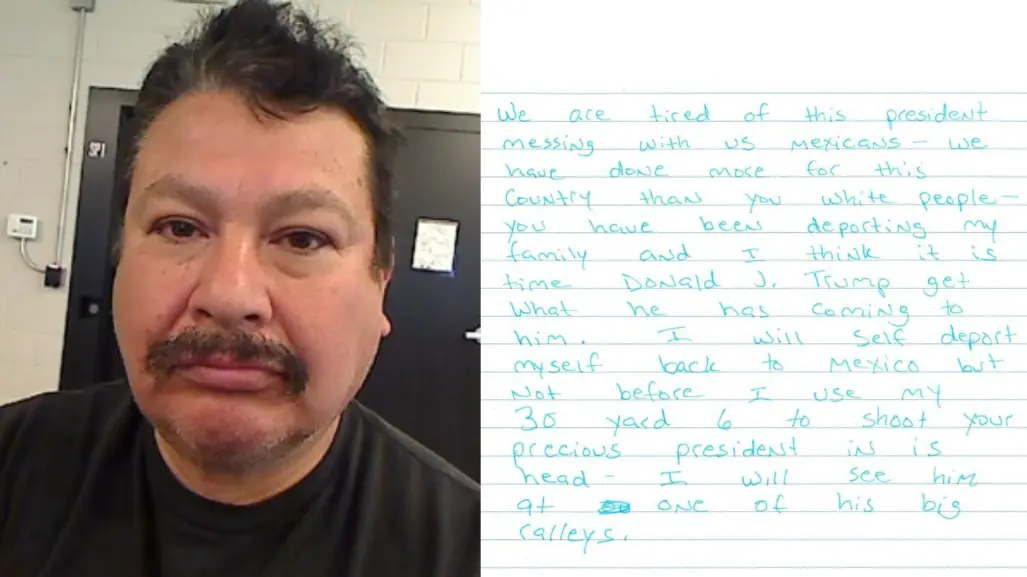 SP1
We are tired of this president
messing with us mexicans - we
have done more for this
country than you white people -
you have been deporting my
family and I think it is
time Donald J. Trump get
what he has coming to
him. I will self deport
myself back to mexico but
not before I use my
30 yard 6 to shoot your
precious president in is
head - I will see him
at one of his big
ralleys.